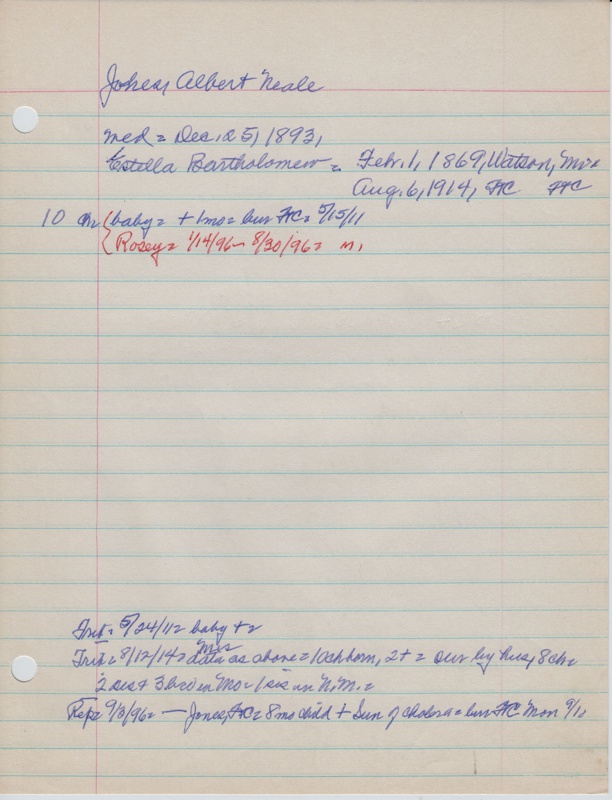 Jones, Albert Neale
med = Dec. 25, 1893,
Estella Bartholomew = Feb. 1, 1869, Watson, Mo =
Aug. 6, 1914, FC FC
10 ch { baby = + 1mo = bur FC = 5/15/11
Rosey = 1/14/96 - 8/30/96 = m,
Trib = 5/24/11 = baby + =
Trib = 8/12/14 = Mrs data as above = 10 ch born, 2 + = sur by hus, 8 ch =
2 sis + 3 bro in Mo = 1 sis in N.M. =
Rep = 9/3/96 = — Jones, FC = 8 mo child + Sun of cholera = bur FC Mon